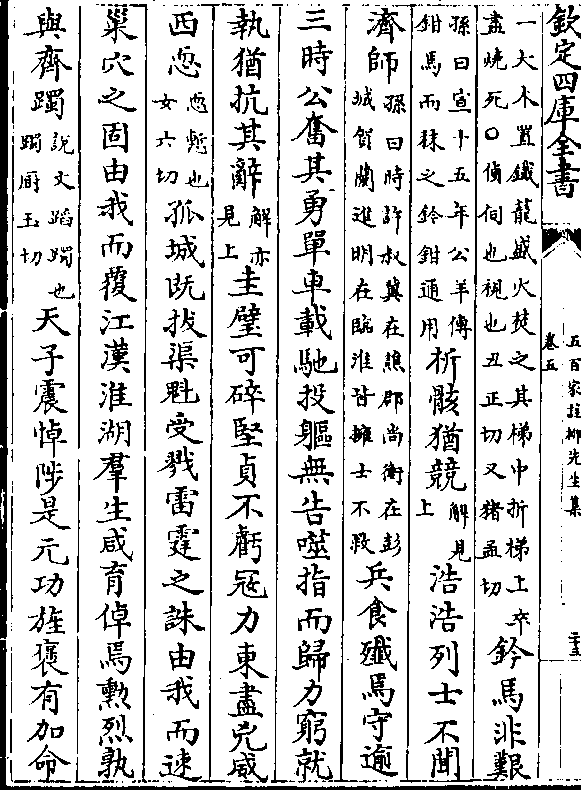 欽定四庫全書
五百家註柳先生集
卷五
二十三
一大木置鐵龍盛火焚之其梯中折梯上卒
盡燒死○偵伺也視也丑正切又猪孟切
鈐馬非艱
孫曰宣十五年公羊傳
鉗馬而秣之鈐鉗通用
析骸猶競
解見
上
浩浩列士不聞
濟師
孫曰時許叔冀在譙郡尚衡在彭
城賀蘭進明在臨淮皆擁士不救
兵食殲焉守逾
三時公奮其勇單車載馳投軀無告噬指而歸力窮就
執猶抗其辭
解亦
見上
圭璧可碎堅貞不虧冦力東盡兇威
西恧
恧慙也
女六切
孤城既拔渠魁受戮雷霆之誅由我而速
巢穴之固由我而覆江漢淮湖羣生咸育倬焉勲烈孰
與齊躅
說文蹈躅也
躅厨玉切
天子震悼陟是元功旌褒有加命